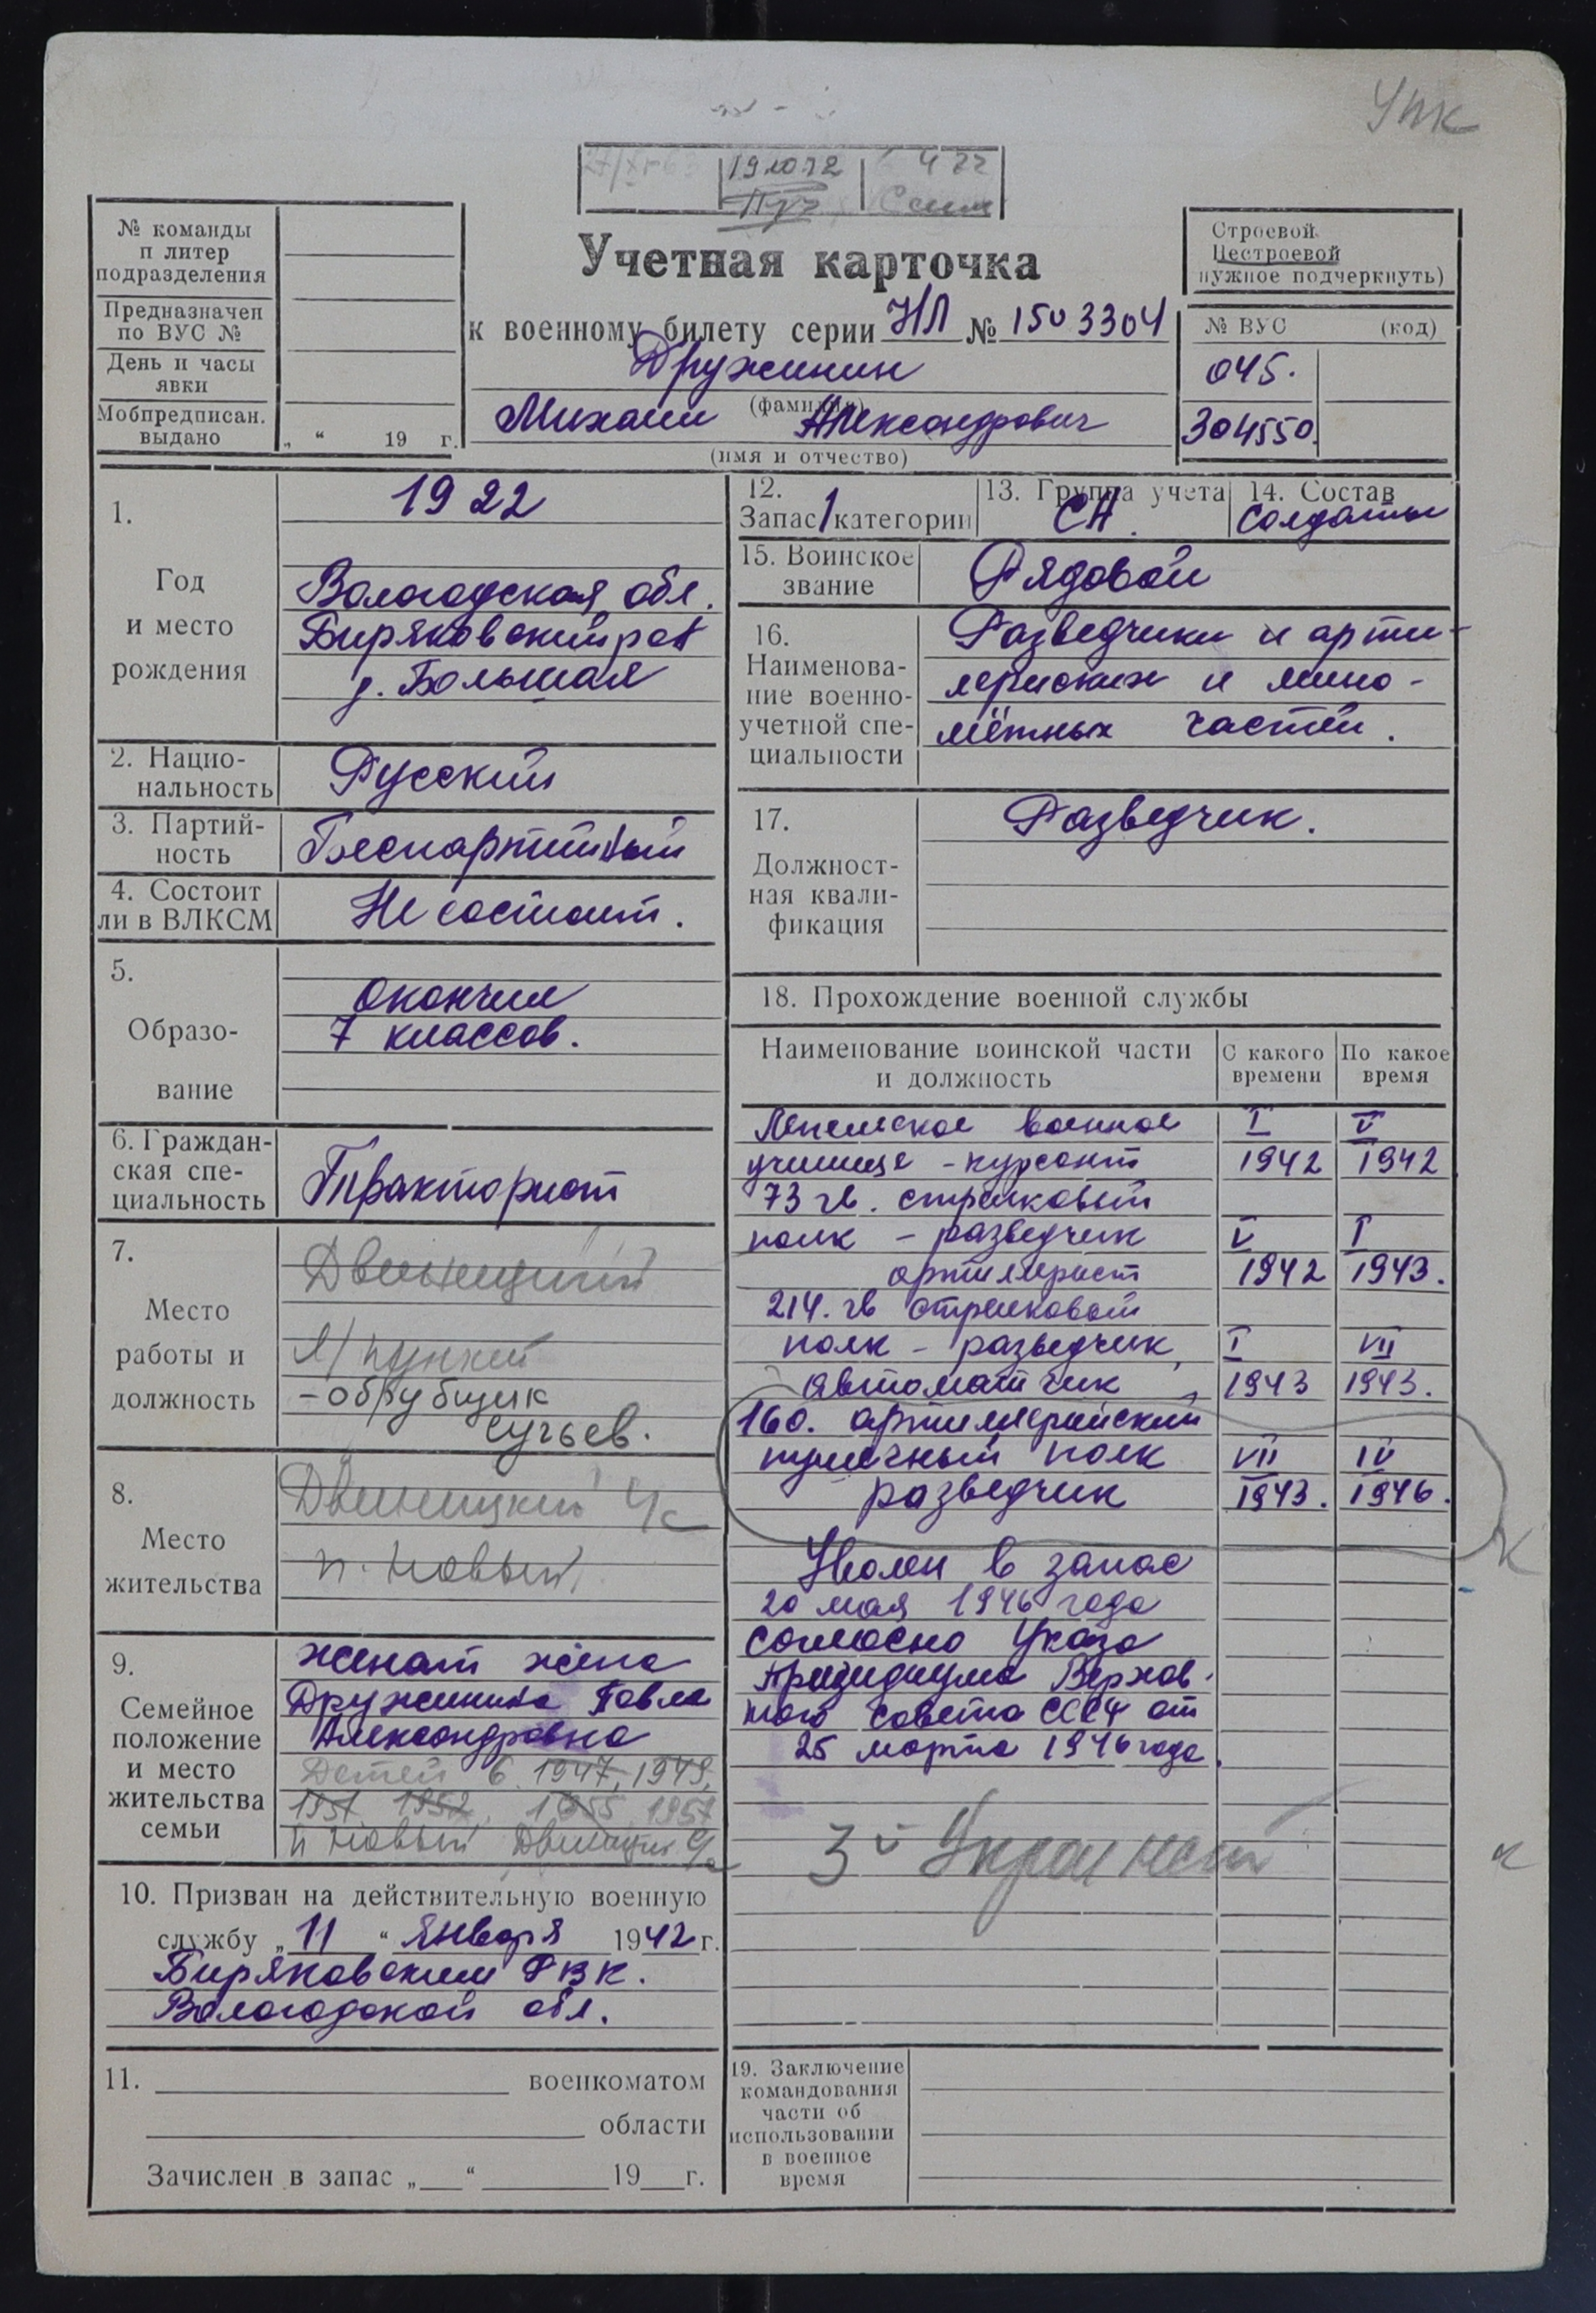 Упк
27/XI-63 19.10.72 4 77
№ команды
п литер
подразделения
Предназначен
по ВУС №
День и часы
явки
Мобпредписан.
выдано
„ “ 19 г.
Учетная карточка
к военному билету серии НЛ № 1503304
Дружинин
(фамилия)
Михаил Александрович
(имя и отчество)
Строевой
Нестроевой
нужное подчеркнуть)
№ ВУС (код)
045.
304550.
1.
Год
и место
рождения
1922
Вологодская обл.
Биряковский р-н
д. Большая
2. Нацио-
нальность
Русский
3. Партий-
ность
Беспартийный
4. Состоит
ли в ВЛКСМ
Не состоит.
5.
Образо-
вание
Окончил
7 классов.
6. Граждан-
ская спе-
циальность
Тракторист
7.
Место
работы и
должность
Двиницкий
л/пункт
-обрубщик
сучьев.
8.
Место
жительства
Двиницкий с/с
п. Новый
9.
Семейное
положение
и место
жительства
семьи
женат жена
Дружинина Павла
Александровна
Детей 6. 1947, 1949,
1951 1952, 1955 1957
п Новый Двиницк с/с
10. Призван на действительную военную
службу „ 11 “ января 1942 г.
Биряковским РВК.
Вологодской обл.
11. военкоматом
области
Зачислен в запас „ “ 19 г.
12.
Запас 1 категории
13. Группа учета
СА.
14. Состав
солдаты
15. Воинское
звание
Рядовой
16.
Наименова-
ние военно-
учетной спе-
циальности
Разведчики и арти-
лериских и мино-
мётных частей.
17.
Должност-
ная квали-
фикация
Разведчик.
18. Прохождение военной службы
Наименование воинской части
и должность
С какого
времени
По какое
время
военное I V
училище - курсант 1942 1942
73 гв. стрелковый
полк - разведчик V I
артилерист 1942 1943.
214. гв стрелковый
полк - разведчик, I VII
автоматчик 1943 1943.
160. артиллерийский
пушечный полк VII IV
разведчик 1943. 1946.
Уволен в запас
20 мая 1946 года
согласно Указа
Президиума Верхов-
ного Совета СССР от
25 марта 1946 года.
3й Украинский
19. Заключение
командования
части об
использовании
в военное
время